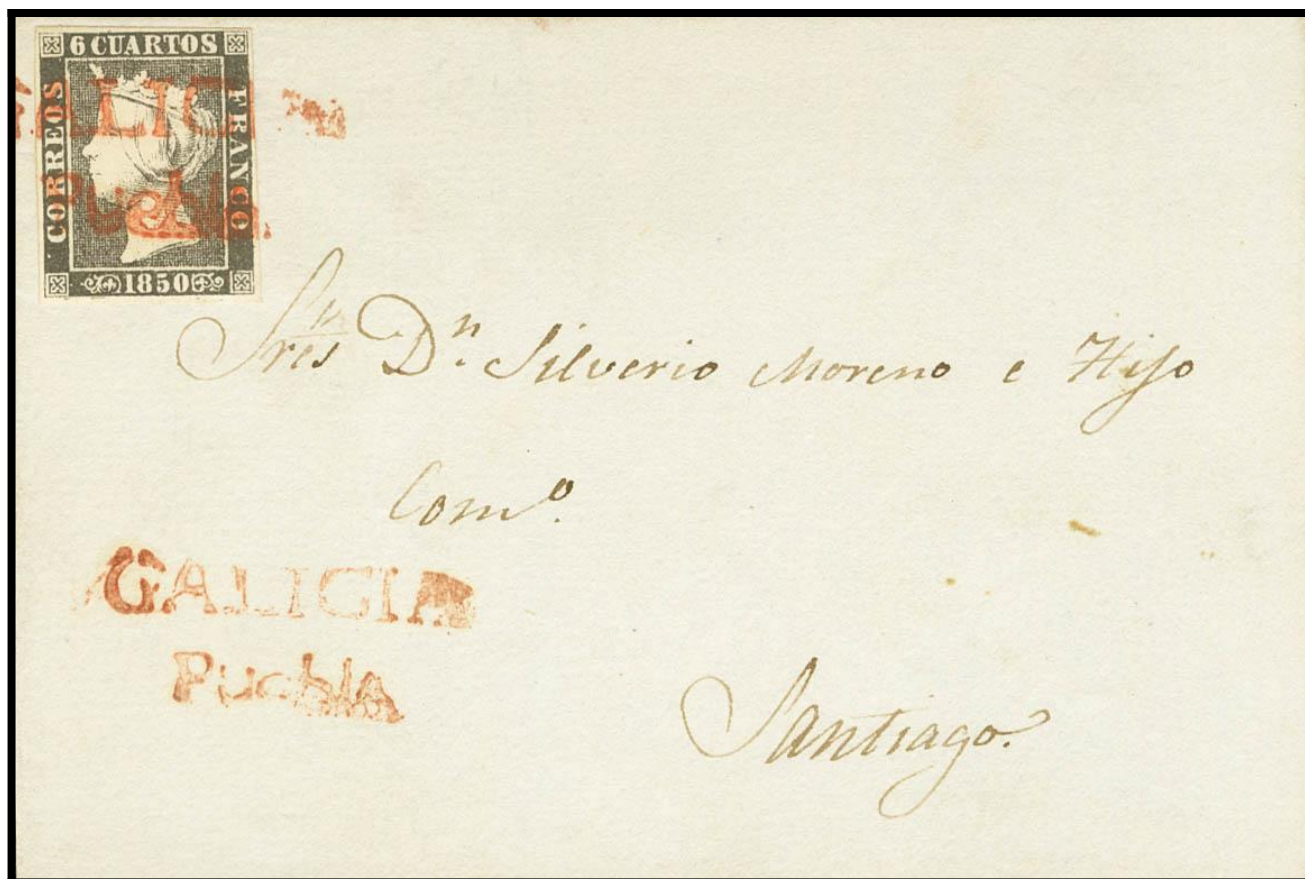 6 CUARTOS
CORREOS
FRANCO
1850
GALICIA
Puebla.
Sres Dn. Silverio Moreno e Hijo
Como.
GALICIA
Puebla
Santiago.